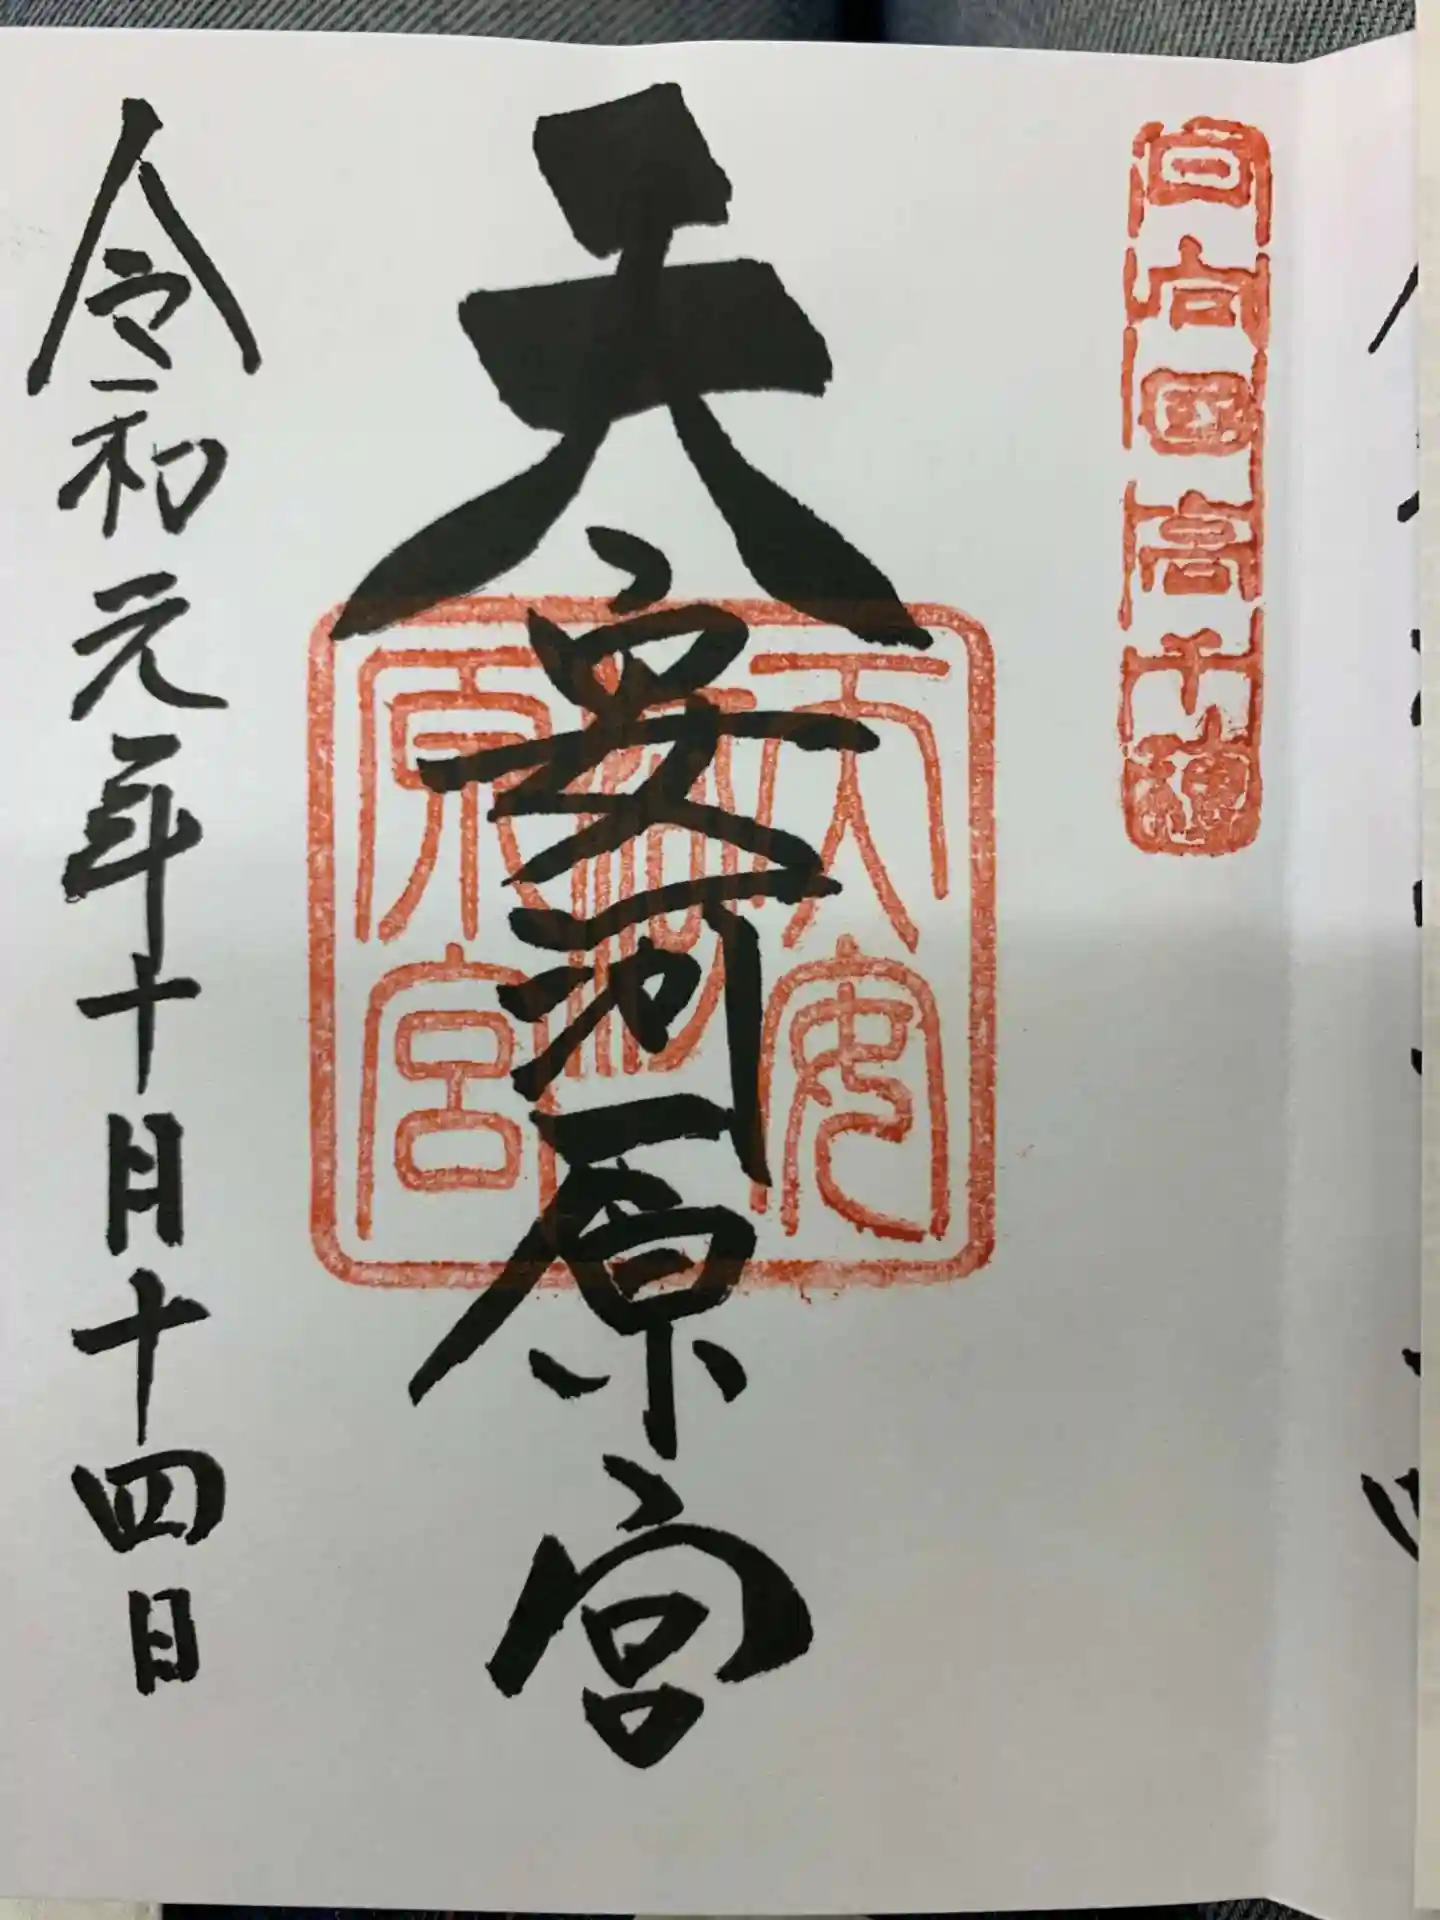 日向國高千穂
天安河原宮
天安河原宮
令和元年十月十四日